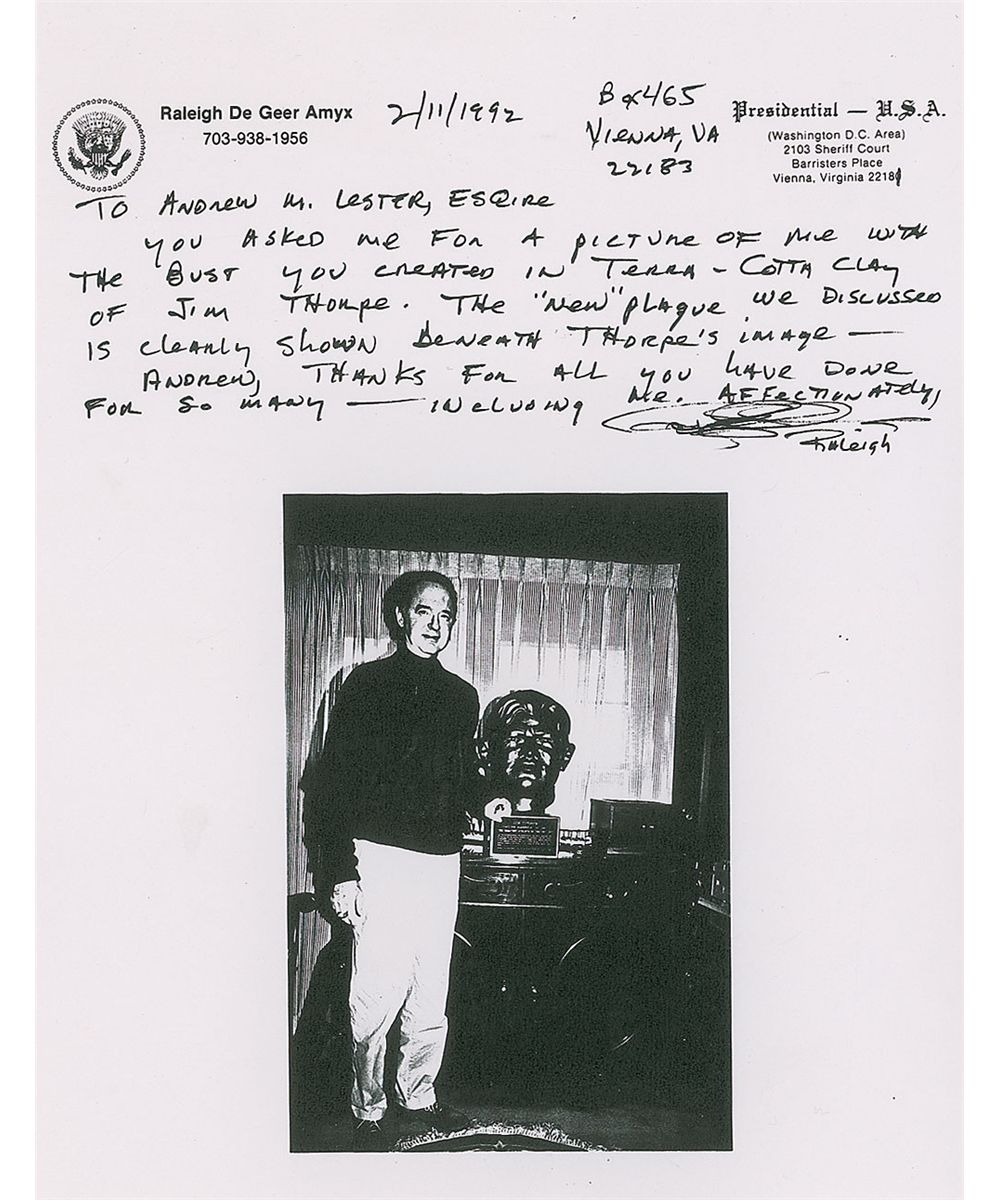 Raleigh De Geer Amyx
703-938-1956
2/11/1992
Box 465
VIENNA, VA
22183
Presidential — U.S.A.
(Washington D.C. Area)
2103 Sheriff Court
Barristers Place
Vienna, Virginia 2218
TO ANDREW M. LESTER, ESQIRE
YOU ASKED ME FOR A PICTURE OF ME WITH
THE BUST YOU CREATED IN TERRA-COTTA CLAY
OF JIM THORPE. THE "NEW" PLAQUE WE DISCUSSED
IS CLEARLY SHOWN BENEATH THORPE'S IMAGE —
ANDREW, THANKS FOR ALL YOU HAVE DONE
FOR SO MANY — INCLUDING ME. AFFECTIONATELY,
RALEIGH